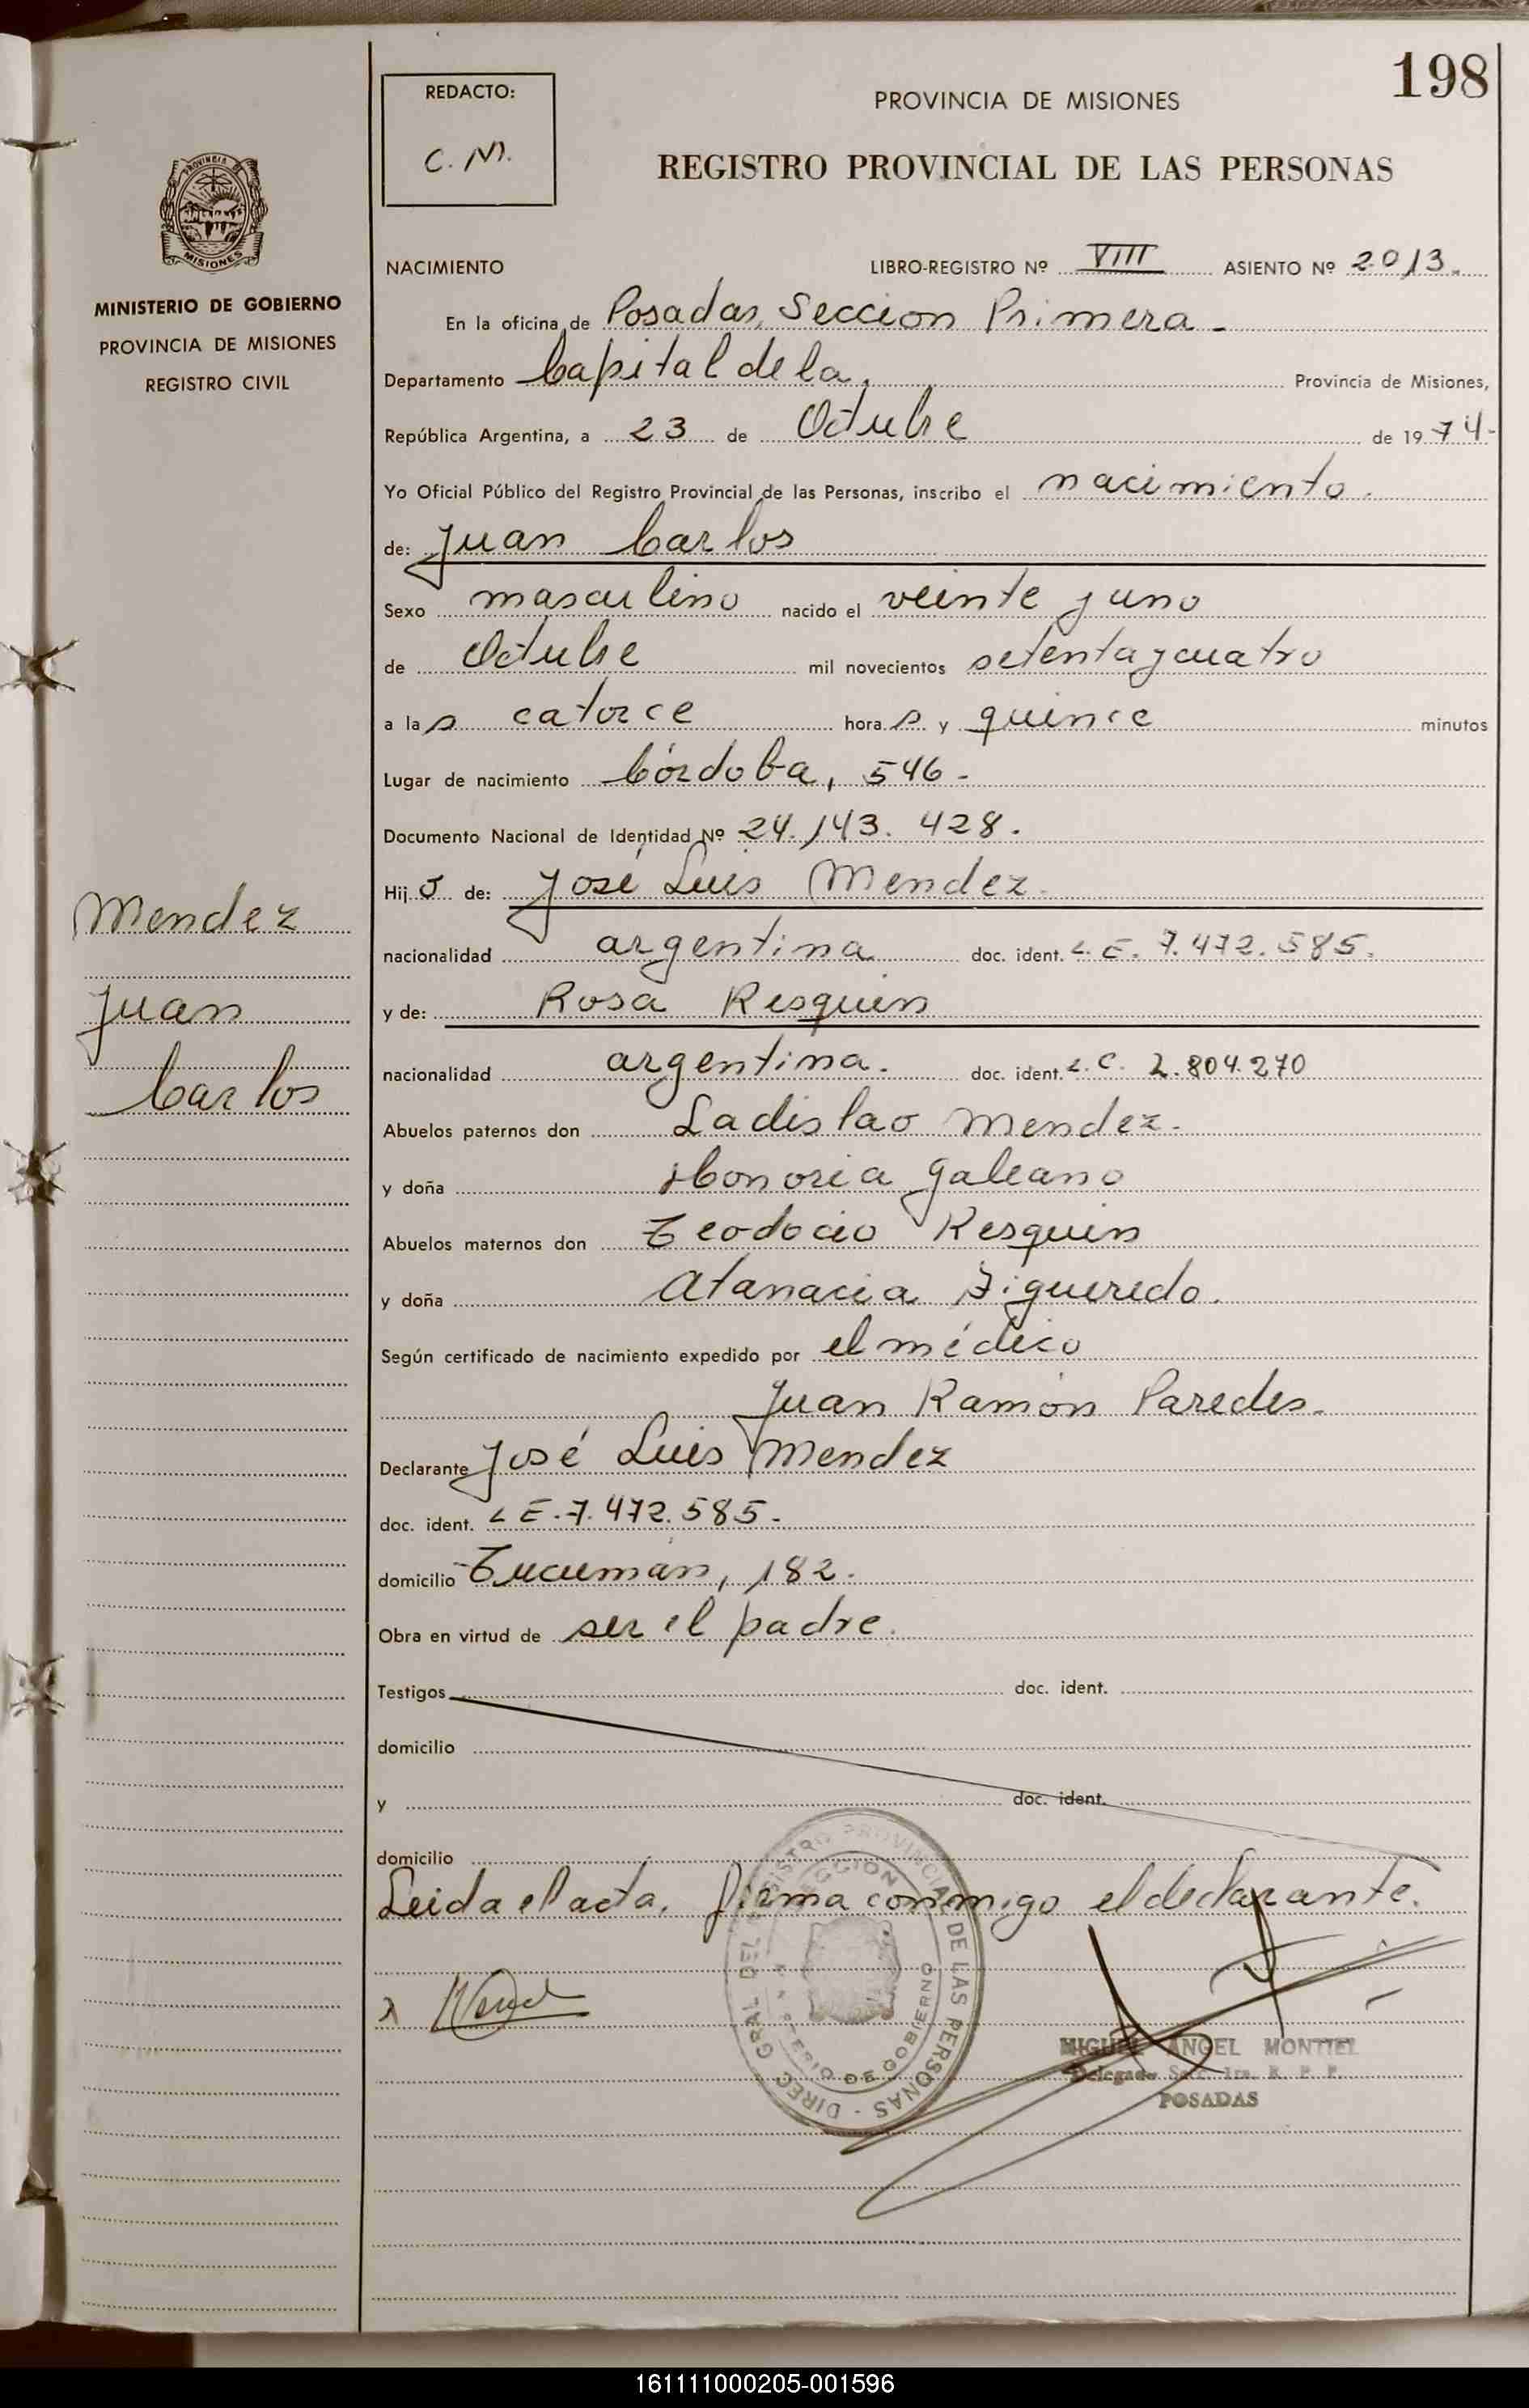 198
REDACTO:
C. M.
PROVINCIA DE MISIONES
REGISTRO PROVINCIAL DE LAS PERSONAS
PROVINCIA DE
MISIONES
MINISTERIO DE GOBIERNO
PROVINCIA DE MISIONES
REGISTRO CIVIL
Mendez
Juan
Carlos
NACIMIENTO LIBRO-REGISTRO Nº VIII ASIENTO Nº 2013
En la oficina de Posadas, Seccion Primera -
Departamento Capital de la, Provincia de Misiones,
República Argentina, a 23 de Octubre de 1974-
Yo Oficial Público del Registro Provincial de las Personas, inscribo el nacimiento.
de: Juan Carlos
Sexo masculino nacido el veinte y uno
de Octubre mil novecientos setenta y cuatro
a las catorce horas y quince minutos
Lugar de nacimiento Córdoba, 546 -
Documento Nacional de Identidad Nº 24.143.428.
Hijo de: José Luis Mendez.
nacionalidad argentina doc. ident. L.E. 7.472.585.
y de: Rosa Resquin
nacionalidad argentina. doc. ident. L.C. 2.804.270
Abuelos paternos don Ladislao Mendez.
y doña Honoria Galeano
Abuelos maternos don Teodocio Resquin
y doña Atanacia Figueredo.
Según certificado de nacimiento expedido por el médico
Juan Ramón Paredes.
Declarante José Luis Mendez
doc. ident. L E. 7.472.585.
domicilio Tucumán, 182.
Obra en virtud de ser el padre.
Testigos doc. ident.
domicilio
y doc. ident.
domicilio
Leida el acta, firma conmigo el declarante.
DIREC. GRAL. DEL REGISTRO PROVINCIAL DE LAS PERSONAS
MINISTERIO DE GOBIERNO
MIGUEL ANGEL MONTIEL
Delegado Secc. 1ra. R. P. P.
POSADAS
161111000205-001596